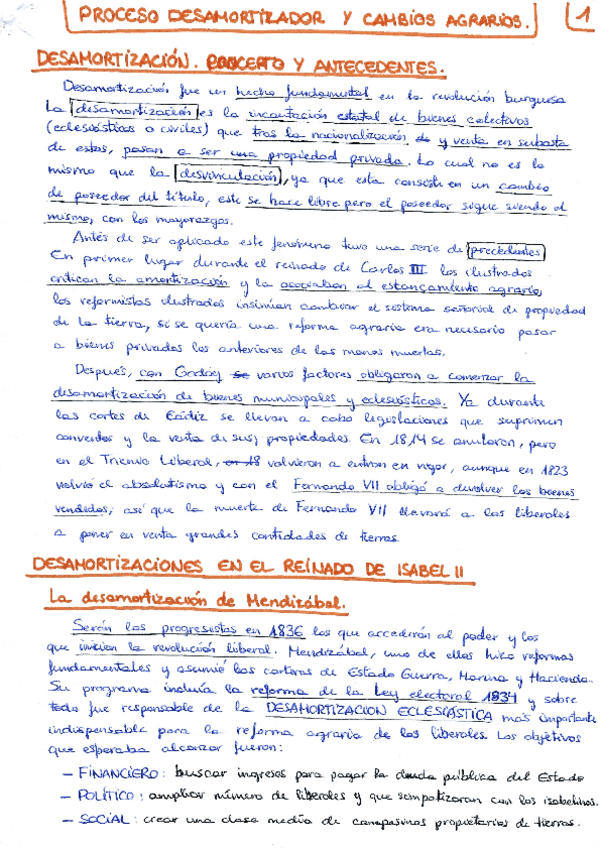 PROCESO DESAMORTIZADOR Y CAMBIOS AGRARIOS. 1
DESAMORTIZACIÓN. CONCEPTO Y ANTECEDENTES.
Desamortización fue un hecho fundamental en la revolución burguesa
La desamortización es la incautación estatal de bienes colectivos
(eclesiásticos o civiles) que tras la nacionalización de y venta en subasta
de estos, pasan a ser una propiedad privada. Lo cual no es lo
mismo que la desvinculación, ya que esta consiste en un cambio
de poseedor del título, este se hace libre pero el poseedor sigue siendo el
mismo, con los mayorazgos.
Antes de ser aplicado este fenómeno tuvo una serie de precedentes
En primer lugar durante el reinado de Carlos III los ilustrados
critican la amortización y la asociaban al estancamiento agrario,
los reformistas ilustrados insinúan cambiar el sistema señorial de propiedad
de la tierra, si se quería una reforma agraria era necesario pasar
a bienes privados los anteriores de las manos muertas.
Después, con Godoy se varios factores obligaron a comenzar la
desamortización de bienes municipales y eclesiásticos. Ya durante
las cortes de Cádiz se llevan a cabo legislaciones que suprimen
conventos y la venta de sus propiedades. En 1814 se anularon, pero
en el Trienio Liberal, en 18 volvieron a entrar en vigor, aunque en 1823
volvió el absolutismo y con el Fernando VII obligó a devolver los bienes
vendidos, así que la muerte de Fernando VII llevará a los liberales
a poner en venta grandes cantidades de tierras.
DESAMORTIZACIONES EN EL REINADO DE ISABEL II
La desamortización de Mendizábal.
Serán los progresistas en 1836 los que accederán al poder y los
que inician la revolución liberal. Mendizábal, uno de ellos hizo reformas
fundamentales y asumió las carteras de Estado Guerra, Marina y Hacienda.
Su programa incluía la reforma de la Ley electoral 1834 y sobre
todo fue responsable de la DESAMORTIZACION ECLESIÁSTICA más importante
indispensable para la reforma agraria de los liberales. Los objetivos
que esperaba alcanzar fueron:
– FINANCIERO: buscar ingresos para pagar la deuda pública del Estado
– POLÍTICO: ampliar número de liberales y que simpatizaran con los isabelinos.
– SOCIAL: crear una clase media de campesinos propietarios de tierras.